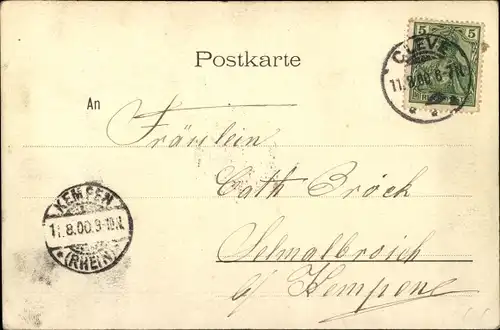 Postkarte
5
CLEVE
11.8.00.8-9N.
An
Fräulein
Cath Bröck
KEMPEN
11.8.00.9-10.N.
(RHEIN)
Schmalbroich
b/ Kempen